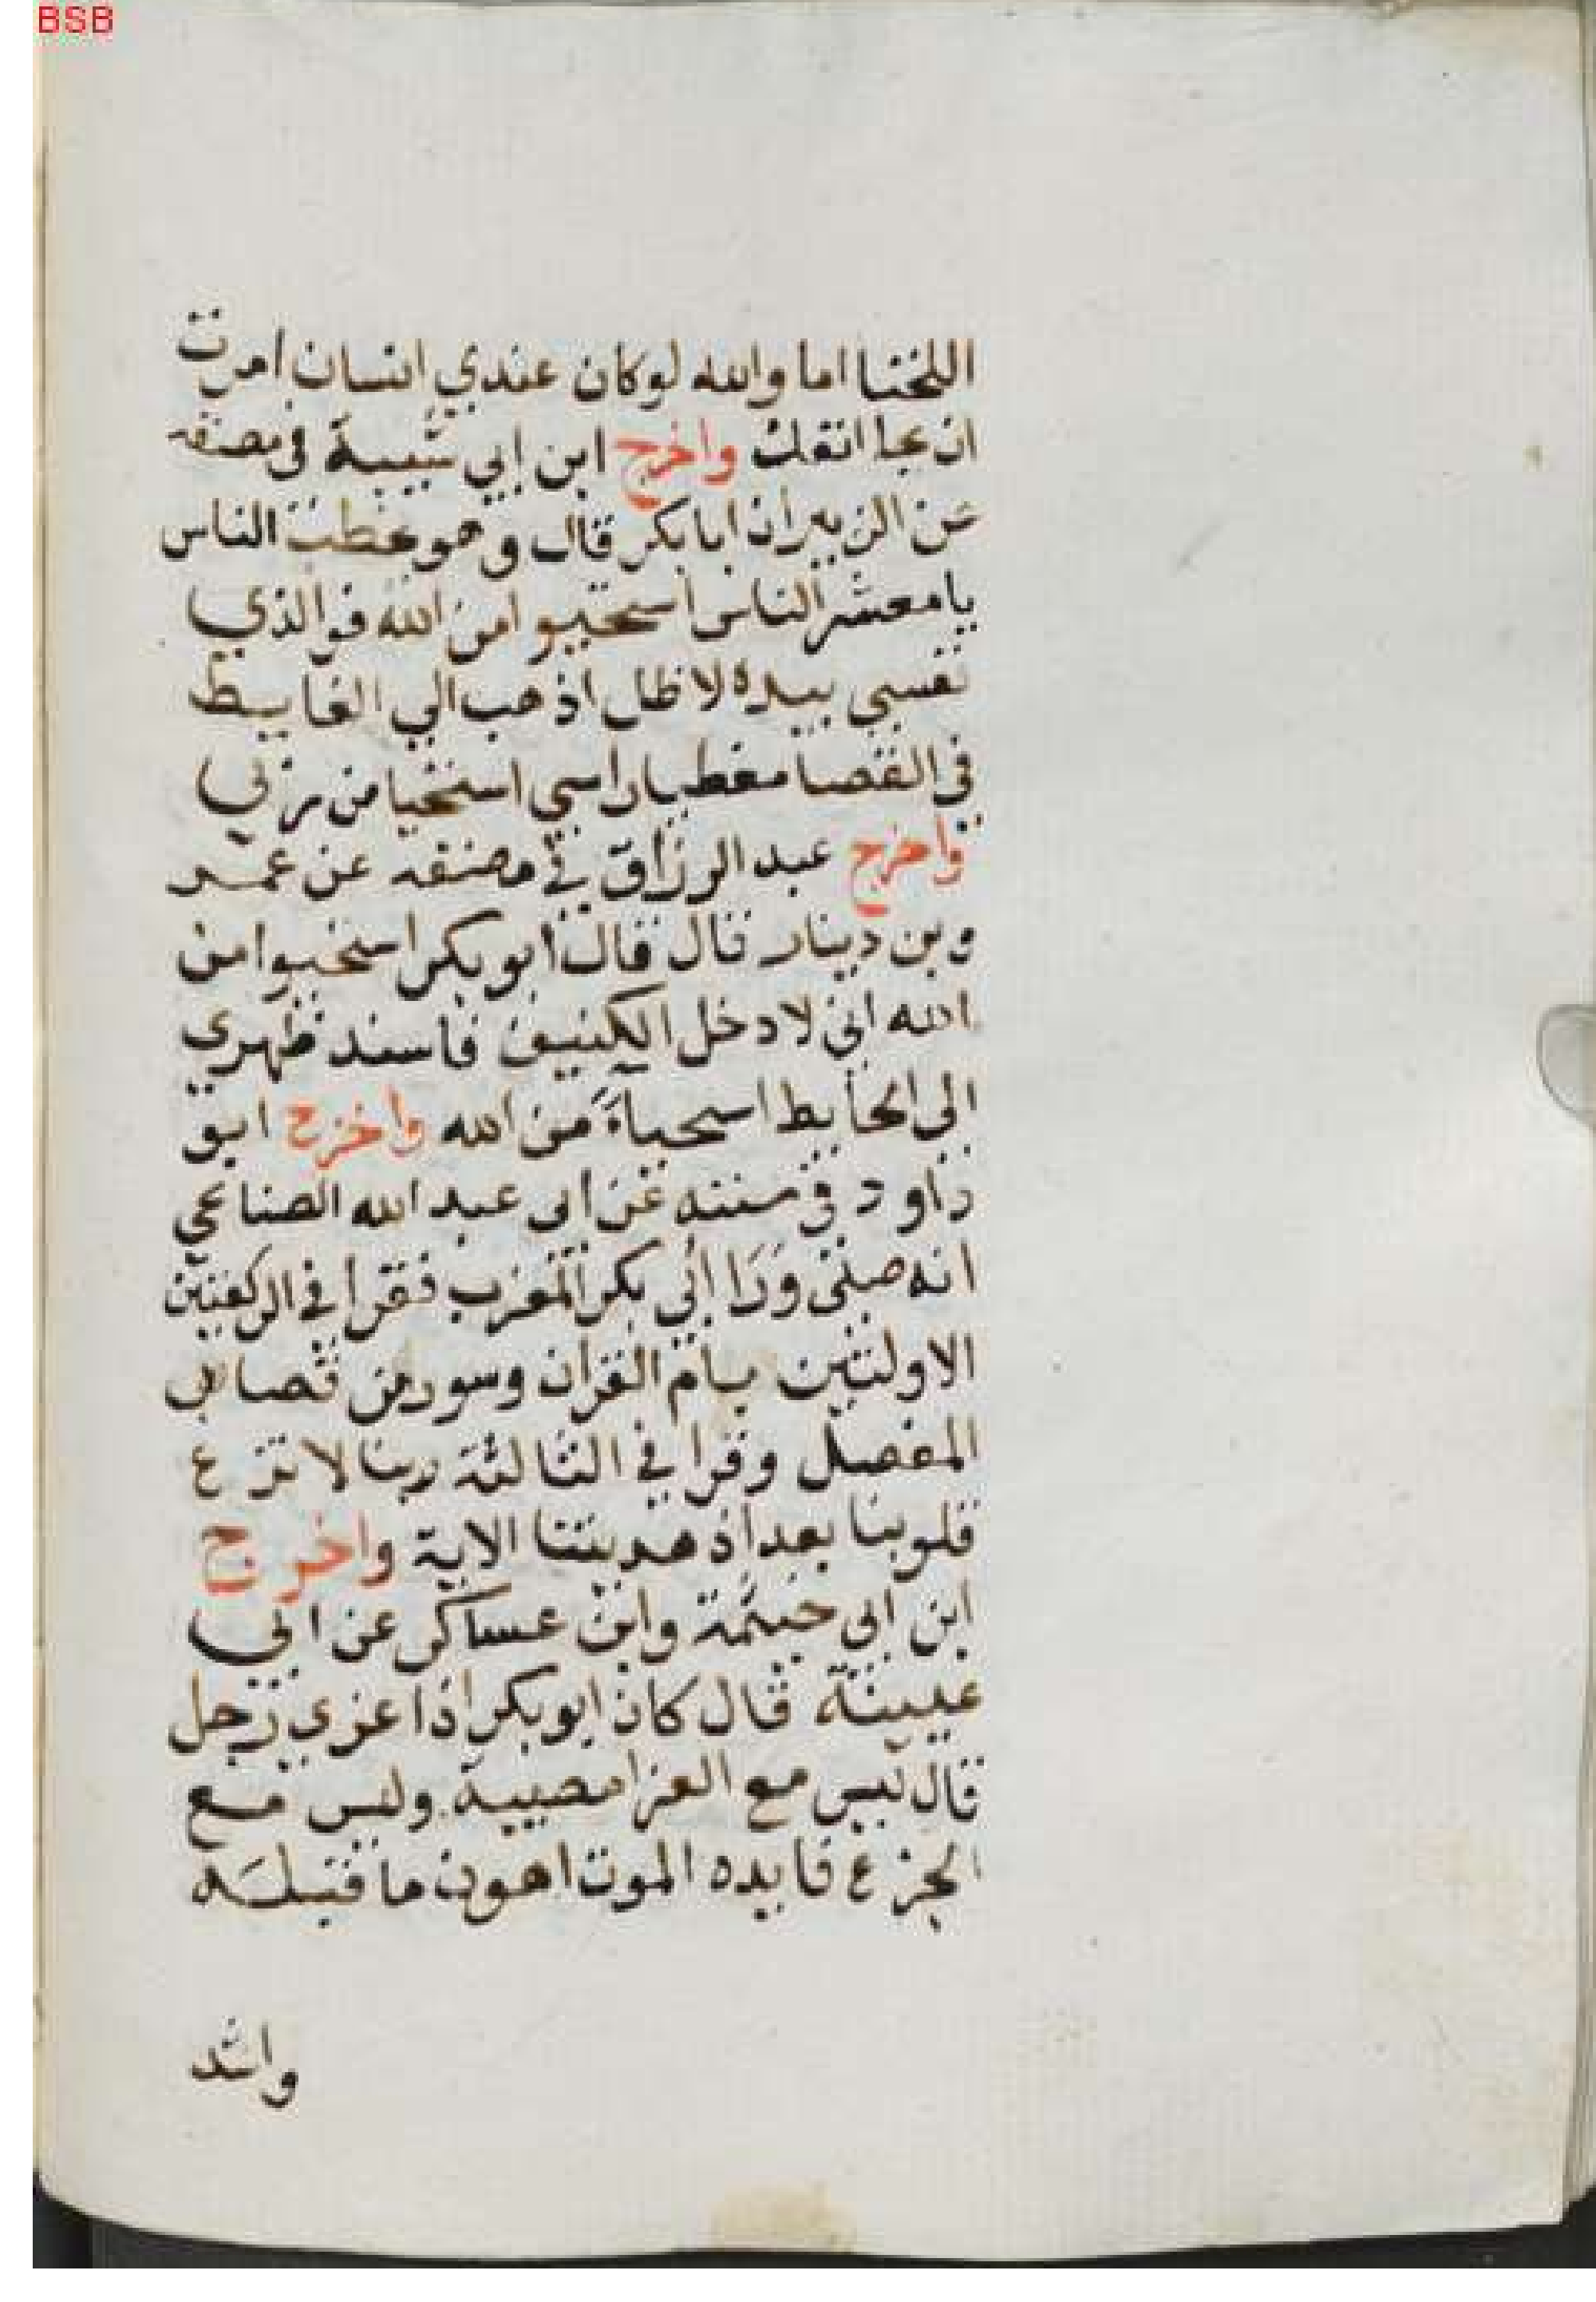 BSB
اللخنا اما والله لوكان عندي انسان امرت
ان يجا انفك واخرج ابن ابي شيبة في مصنفه
عن الزبير ان ابا بكر قال وهو يخطب الناس
يا معشر الناس استحيوا من الله فوالذي
نفسي بيده لا ظل اذهب الي الغاييط
في الفضا مغطيا راسي استحيا من ربي
واخرج عبد الرزاق في مصنفه عن عمر
و بن دينار قال قال ابو بكر استحيوا من
الله اني لادخل الكنيف فاسند ظهري
الى الحايط استحياة من الله واخرج ابو
داود في سننه عن ابي عبد الله الصنابحي
انه صلى ورا ابي بكر المغرب فقرا في الركعتين
الاولتين بام القران وسورة من قصار
المفصل وقرا في الثالثة ربنا لا تزغ
قلوبنا بعد اذ هديتنا الاية واخرج
ابن ابي خيثمة وابن عساكر عن ابي
عيينة قال كان ابو بكر اذا عزي رجل
قال ليس مع العزا مصيبة وليس مع
الجزع فايده الموت اهون ما قبله
واشد